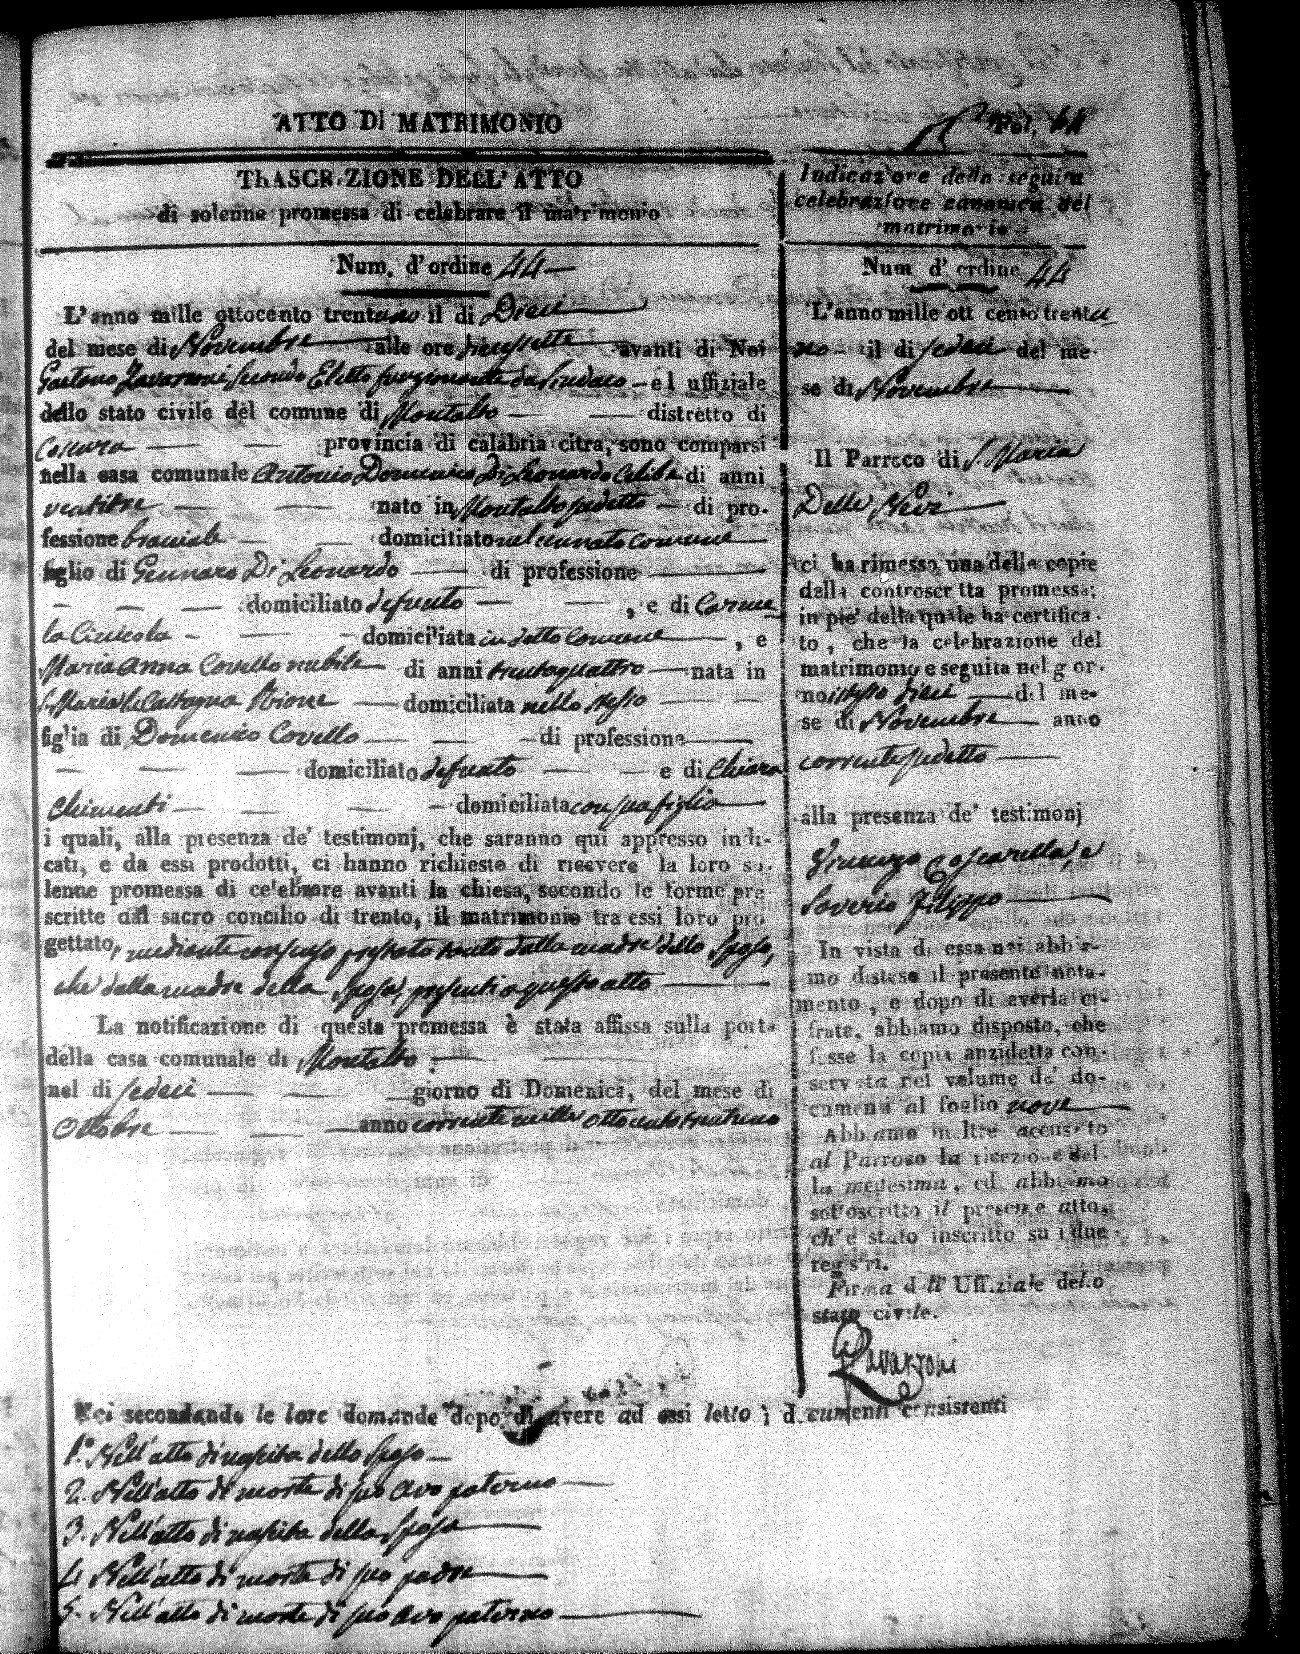 ATTO Di MATRIMONIO
Fol. 44
TRASCRIZIONE DELL'ATTO
di solenne promessa di celebrare il matrimonio
Num. d'ordine 44
L'anno mille ottocento trentuno il di Dieci
del mese di Novembre alle ore avanti di Noi
Gaetano Zavarroni secondo Eletto funzionante da Sindaco ed uffiziale
dello stato civile del comune di Montalto distretto di
Cosenza provincia di calabria citra, sono comparsi
nella casa comunale Antonio Domenico Di Leonardo Celibe di anni
ventitre nato in Montalto sudetto di pro-
fessione bracciale domiciliato nel cennato Comune
figlio di Gennaro Di Leonardo di professione
domiciliato defunto , e di Carme
la domiciliata in detto Comune , e
Maria Anna Covello nubile di anni trentaquattro nata in
S. Maria la Castagna Rione domiciliata nello stesso
figlia di Domenico Covello di professione
domiciliato defunto e di Chiara
Chimenti domiciliata con sua figlia
i quali, alla presenza de' testimonj, che saranno qui appresso indi-
cati, e da essi prodotti, ci hanno richiesto di ricevere la loro so-
lenne promessa di celebrare avanti la chiesa, secondo le forme pre
scritte dal sacro concilio di trento, il matrimonio tra essi loro pro
gettato, mediante consenso prestato tanto dalla madre dello Sposo,
che dalla madre della Sposa, presenti a questo atto
La notificazione di questa promessa è stata affissa sulla porta
della casa comunale di Montalto
nel di sedeci giorno di Domenica, del mese di
Ottobre anno corrente mille ottocento trentuno
Indicazione della seguita
celebrazione canonica del
matrimonio
Num d' ordine 44
L'anno mille ottocento trentu
no il di sedeci del me-
se di Novembre
Il Parroco di S. Maria
Delle Nevi
ci ha rimesso una delle copie
della controscritta promessa;
in pie' della quale ha certifica-
to, che la celebrazione del
matrimonio e seguita nel gior-
no istesso dieci del me-
se di Novembre anno
corrente sudetto
alla presenza de' testimonj
Vincenzo Coscarella, e
Saverio Filippo
In vista di essa noi abbia-
mo disteso il presente nota-
mento, e dopo di averla ci-
frata, abbiamo disposto, che
fosse la copia anzidetta con-
servata nel volume de' do-
cumenti al foglio nove
Abbiamo inoltre accusato
al Parroco la ricezione del-
la medesima, ed abbiamo
sottoscritto il presente atto,
ch'è stato inscritto su i due
registri.
Firma dell' Uffiziale dello
stato civile.
Zavarroni
Noi secondando le loro domande dopo di avere ad essi letto i documenti consistenti
1.° Nell'atto di nascita dello Sposo
2. Nell'atto di morte di suo Avo paterno
3. Nell'atto di nascita della Sposa
4. Nell'atto di morte di suo padre
5. Nell'atto di morte di suo Avo paterno